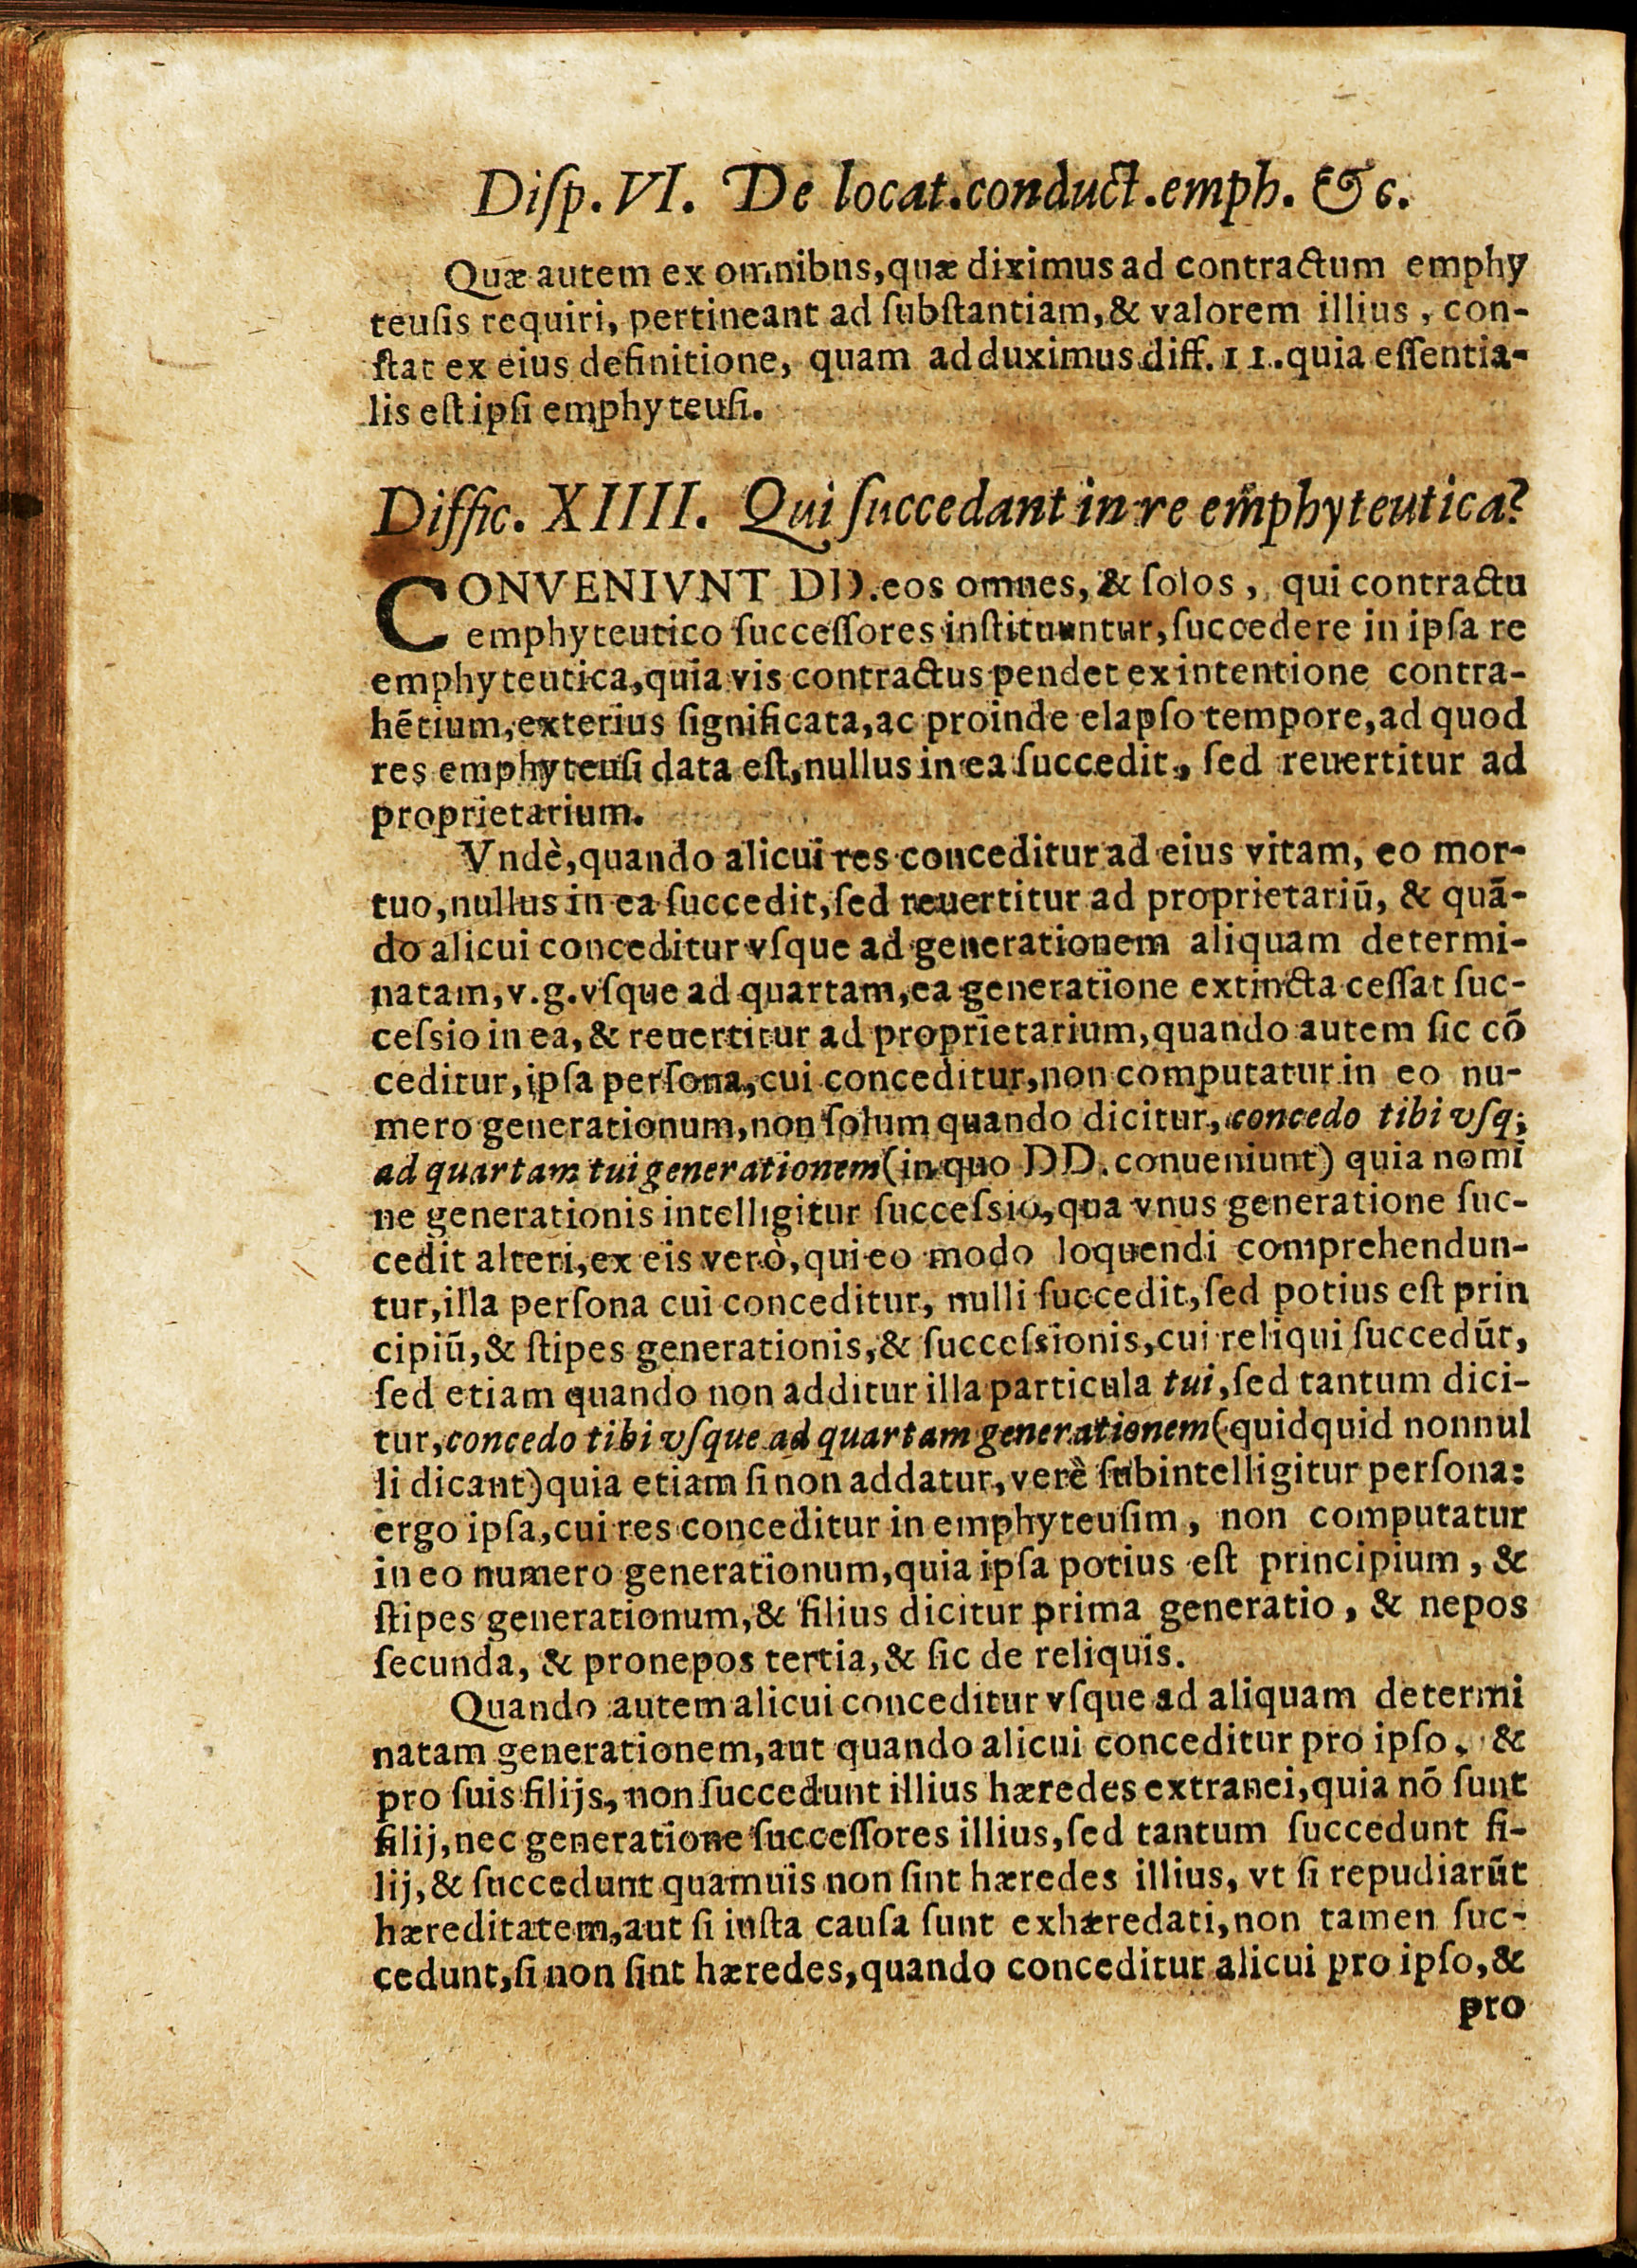 Diſp. VI. De locat.conduct.emph. &c.
Quæ autem ex omnibus,quæ diximus ad contractum emphy
teuſis requiri, pertineant ad ſubſtantiam,& valorem illius , con-
ſtat ex eius definitione, quam adduximus diff. 11.quia eſſentia-
lis eſt ipſi emphyteuſi.
Diffic. XIIII. Qui ſuccedant in re emphyteutica?
CONVENIVNT DD.eos omnes, & ſolos , qui contractu
emphyteutico ſucceſſores inſtituuntur,ſuccedere in ipſa re
emphyteutica,quia vis contractus pendet ex intentione contra-
hētium,exterius ſignificata,ac proinde elapſo tempore,ad quod
res emphyteuſi data eſt,nullus in ea ſuccedit, ſed reuertitur ad
proprietarium.
Vndè,quando alicui res conceditur ad eius vitam, eo mor-
tuo,nullus in ea ſuccedit,ſed reuertitur ad proprietariū, & quā-
do alicui conceditur vſque ad generationem aliquam determi-
natam,v.g.vſque ad quartam,ea generatione extincta ceſſat ſuc-
ceſsio in ea,& reuertitur ad proprietarium,quando autem ſic cō
ceditur,ipſa perſona,cui conceditur,non computatur in eo nu-
mero generationum,non ſolum quando dicitur,concedo tibi vſq;
ad quartam tui generationem(in quo DD.conueniunt) quia nomi
ne generationis intelligitur ſucceſsio,qua vnus generatione ſuc-
cedit alteri,ex eis verò,qui eo modo loquendi comprehendun-
tur,illa perſona cui conceditur, nulli ſuccedit,ſed potius eſt prin
cipiū,& ſtipes generationis,& ſucceſsionis,cui reliqui ſuccedūt,
ſed etiam quando non additur illa particula tui,ſed tantum dici-
tur,concedo tibi vſque ad quartam generationem(quidquid nonnul
li dicant)quia etiam ſi non addatur,verè ſubintelligitur perſona:
ergo ipſa,cui res conceditur in emphyteuſim, non computatur
in eo numero generationum,quia ipſa potius eſt principium , &
ſtipes generationum,& filius dicitur prima generatio, & nepos
ſecunda, & pronepos tertia,& ſic de reliquis.
Quando autem alicui conceditur vſque ad aliquam determi
natam generationem,aut quando alicui conceditur pro ipſo, &
pro ſuis filijs,non ſuccedunt illius hæredes extranei,quia nō ſunt
filij,nec generatione ſucceſſores illius,ſed tantum ſuccedunt fi-
lij,& ſuccedunt quamuis non ſint hæredes illius, vt ſi repudiarūt
hæreditatem,aut ſi iuſta cauſa ſunt exhæredati,non tamen ſuc-
cedunt,ſi non ſint hæredes,quando conceditur alicui pro ipſo,&
pro